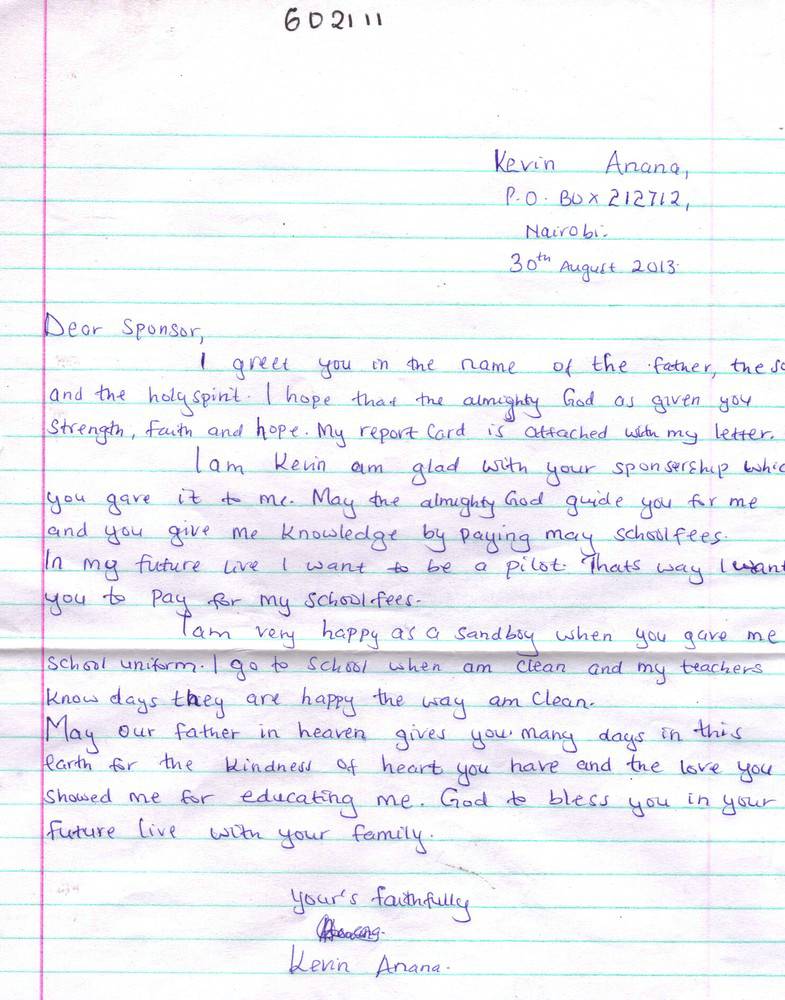 602111
Kevin Anana,
P.O. Box 212712,
Nairobi.
30th August 2013.
Dear Sponsor,
I greet you in the name of the father, the so
and the holyspirit. I hope that the almighty God as given you
Strength, faith and hope. My report Card is attached with my letter.
I am Kevin am glad with your sponsership whic
you gave it to me. May the almighty God guide you for me
and you give me knowledge by paying may schoolfees.
In my future live I want to be a pilot. Thats way I want
you to pay for my schoolfees.
I am very happy as a sandboy when you gave me
school uniform. I go to school when am clean and my teachers
know days they are happy the way am clean.
May our father in heaven gives you many days in this
earth for the kindness of heart you have and the love you
showed me for educating me. God to bless you in your
future live with your family.
Your's faithfully
Kevin Anana.